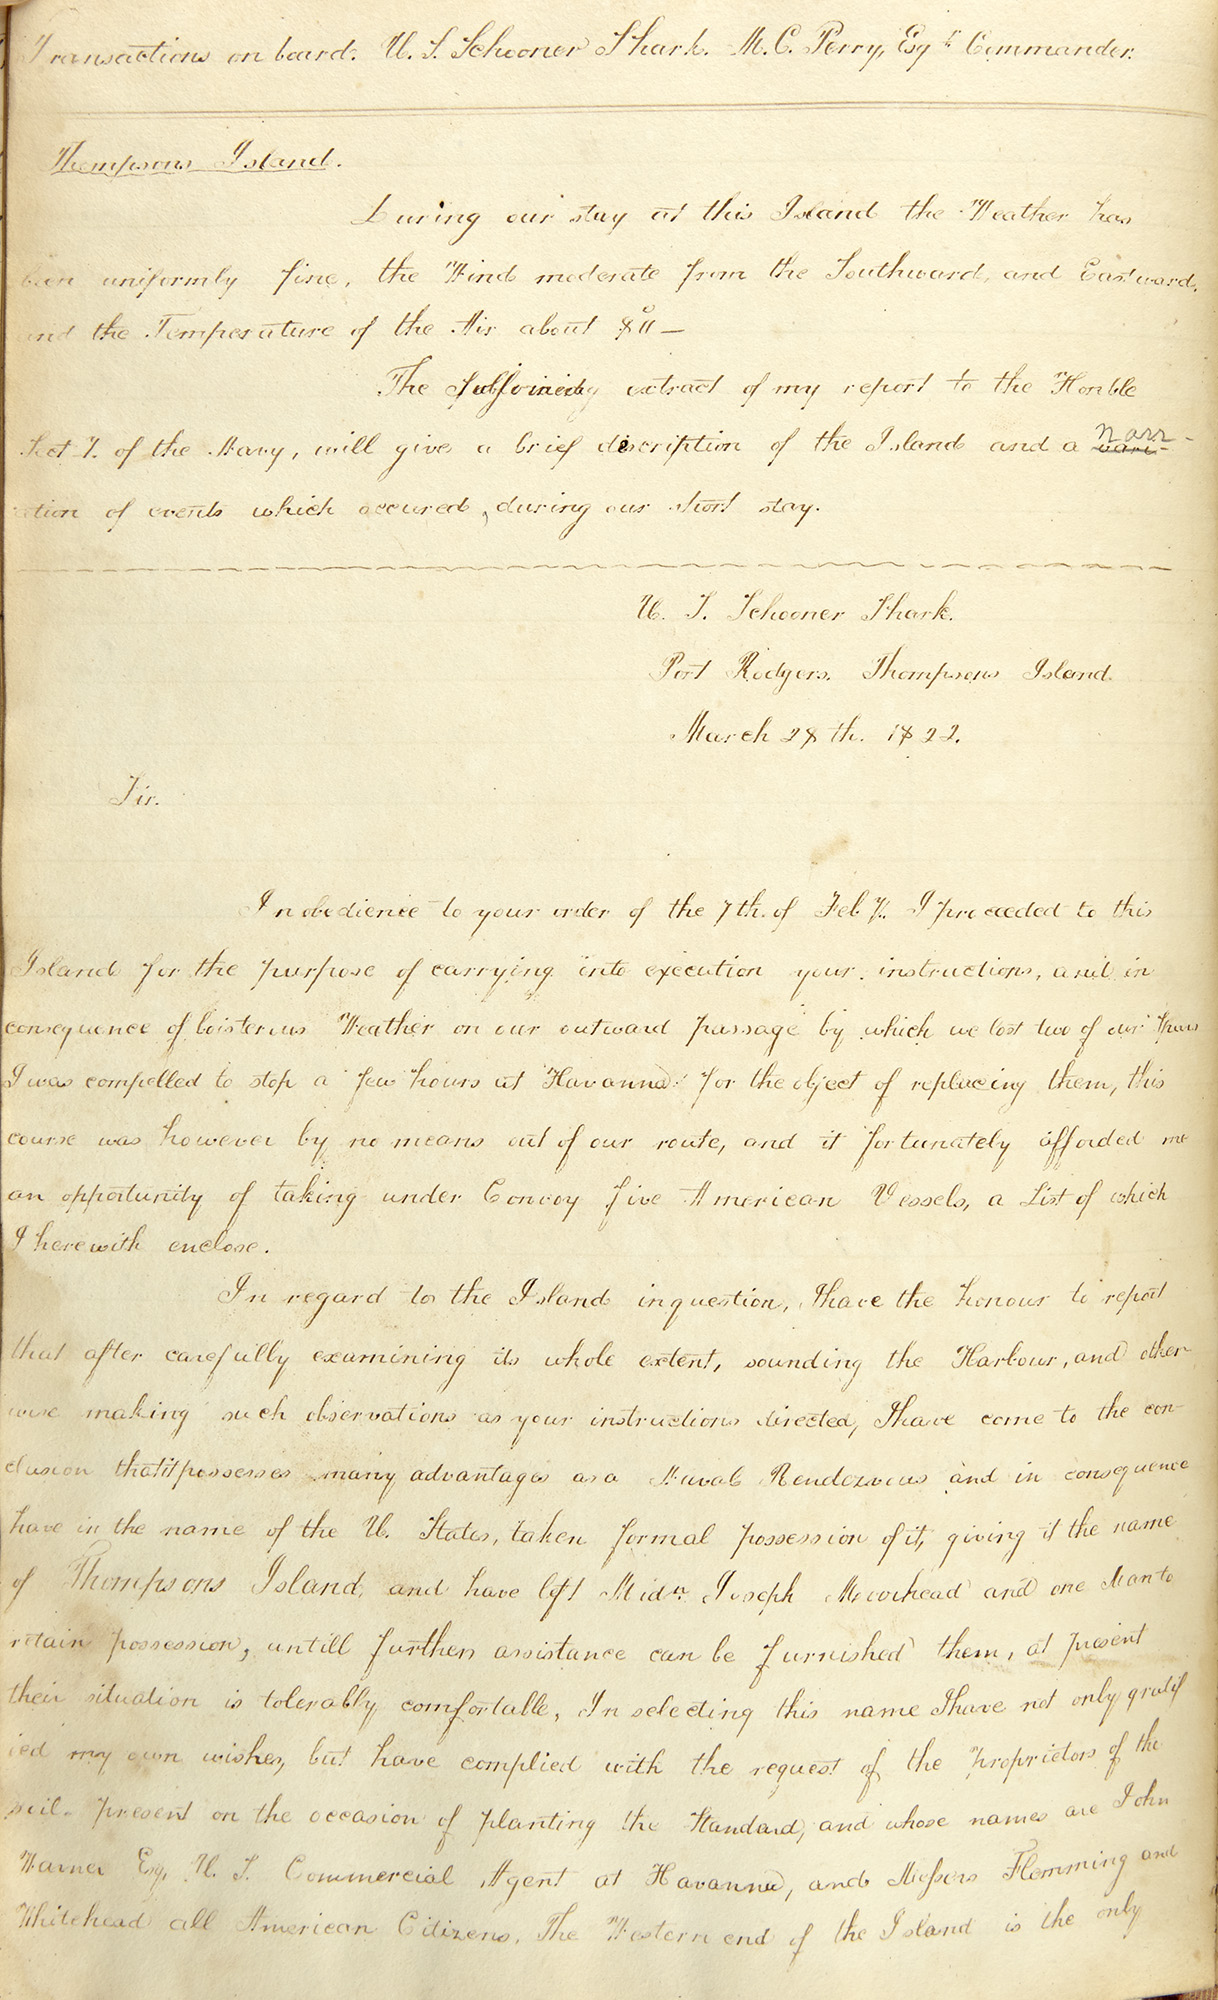 Transactions on board. U. S. Schooner Shark. M. C. Perry, Esqr Commander.
Thompsons Island.
During our stay at this Island the Weather has
been uniformly fine, the Wind moderate from the Southward, and Eastward,
and the Temperature of the Air about 80° —
The extract of my report to the Honble
Sect.y. of the Navy, will give a brief description of the Island and a narr-
ation of events which occured, during our short stay.
U. S. Schooner Shark.
Port Rodgers. Thompsons Island
March 28th. 1822.
Sir.
In obedience to your order of the 7th. of Feb.y. I proceeded to this
Island for the purpose of carrying into execution your instructions, and in
consequence of boisterous Weather on our outward passage by which we lost two of our Spars
I was compelled to stop a few hours at Havanna for the object of replacing them, this
course was however by no means out of our route, and it fortunately afforded me
an opportunity of taking under Convoy five American Vessels, a List of which
I herewith enclose.
In regard to the Island in question, I have the honour to report
that after carefully examining its whole extent, sounding the Harbour, and other-
wise making such observations as your instructions directed, I have come to the con-
clusion that it possesses many advantages as a Naval Rendezvous and in consequence
have in the name of the U. States, taken formal possession of it, giving it the name
of Thompsons Island, and have left Midn. Joseph Moorhead and one Man to
retain possession, untill further assistance can be furnished them, at present
their situation is tolerably comfortable, In selecting this name I have not only gratif
ied my own wishes, but have complied with the request of the proprietors of the
soil. present on the occasion of planting the Standard, and whose names are John
Warner Esq, U. S. Commercial Agent at Havanna, and Messers Flemming and
Whitehead all American Citizens. The Western end of the Island is the only